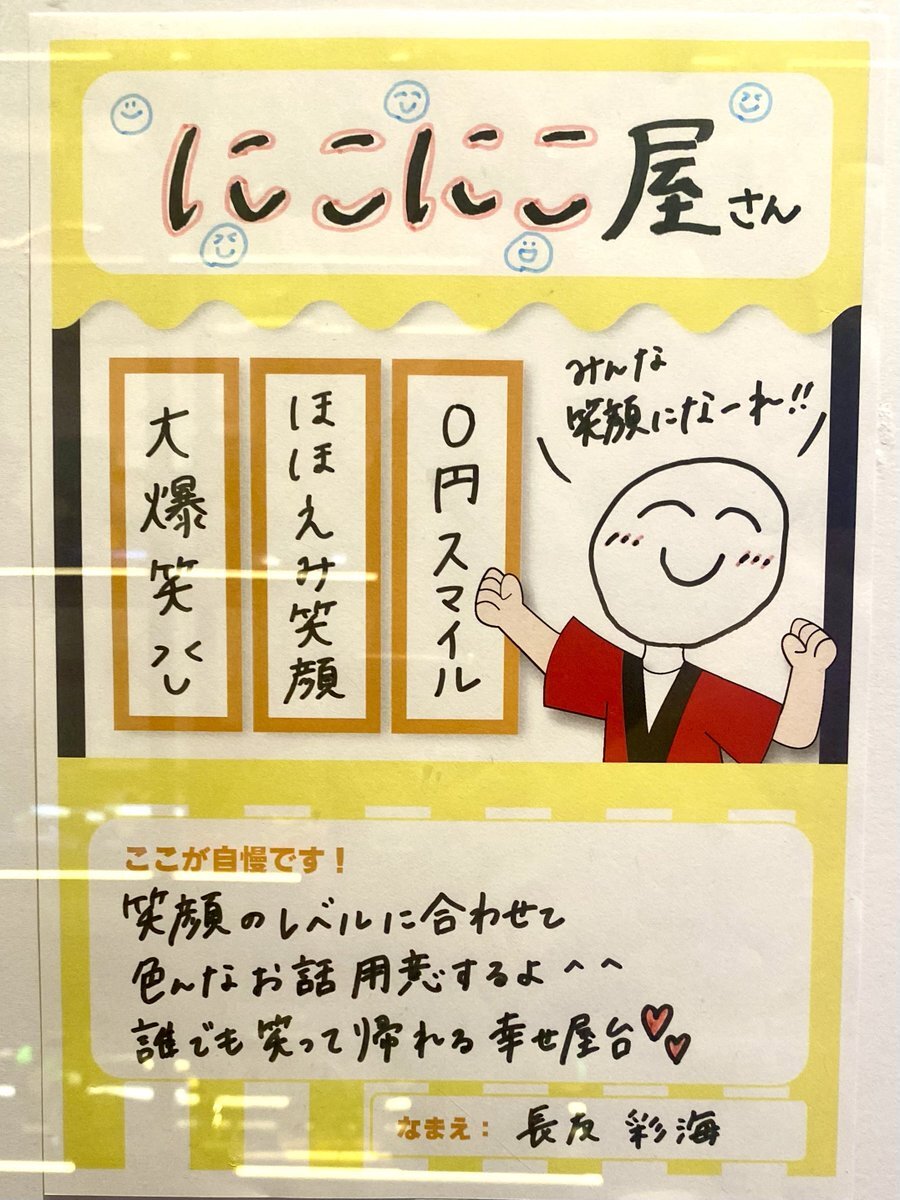 にこにこ屋さん
みんな
笑顔になーれ!!
0円スマイル
ほほえみ笑顔
大爆笑
ここが自慢です！
笑顔のレベルに合わせて
色んなお話用意するよ^^
誰でも笑って帰れる幸せ屋台
なまえ： 長友 彩海